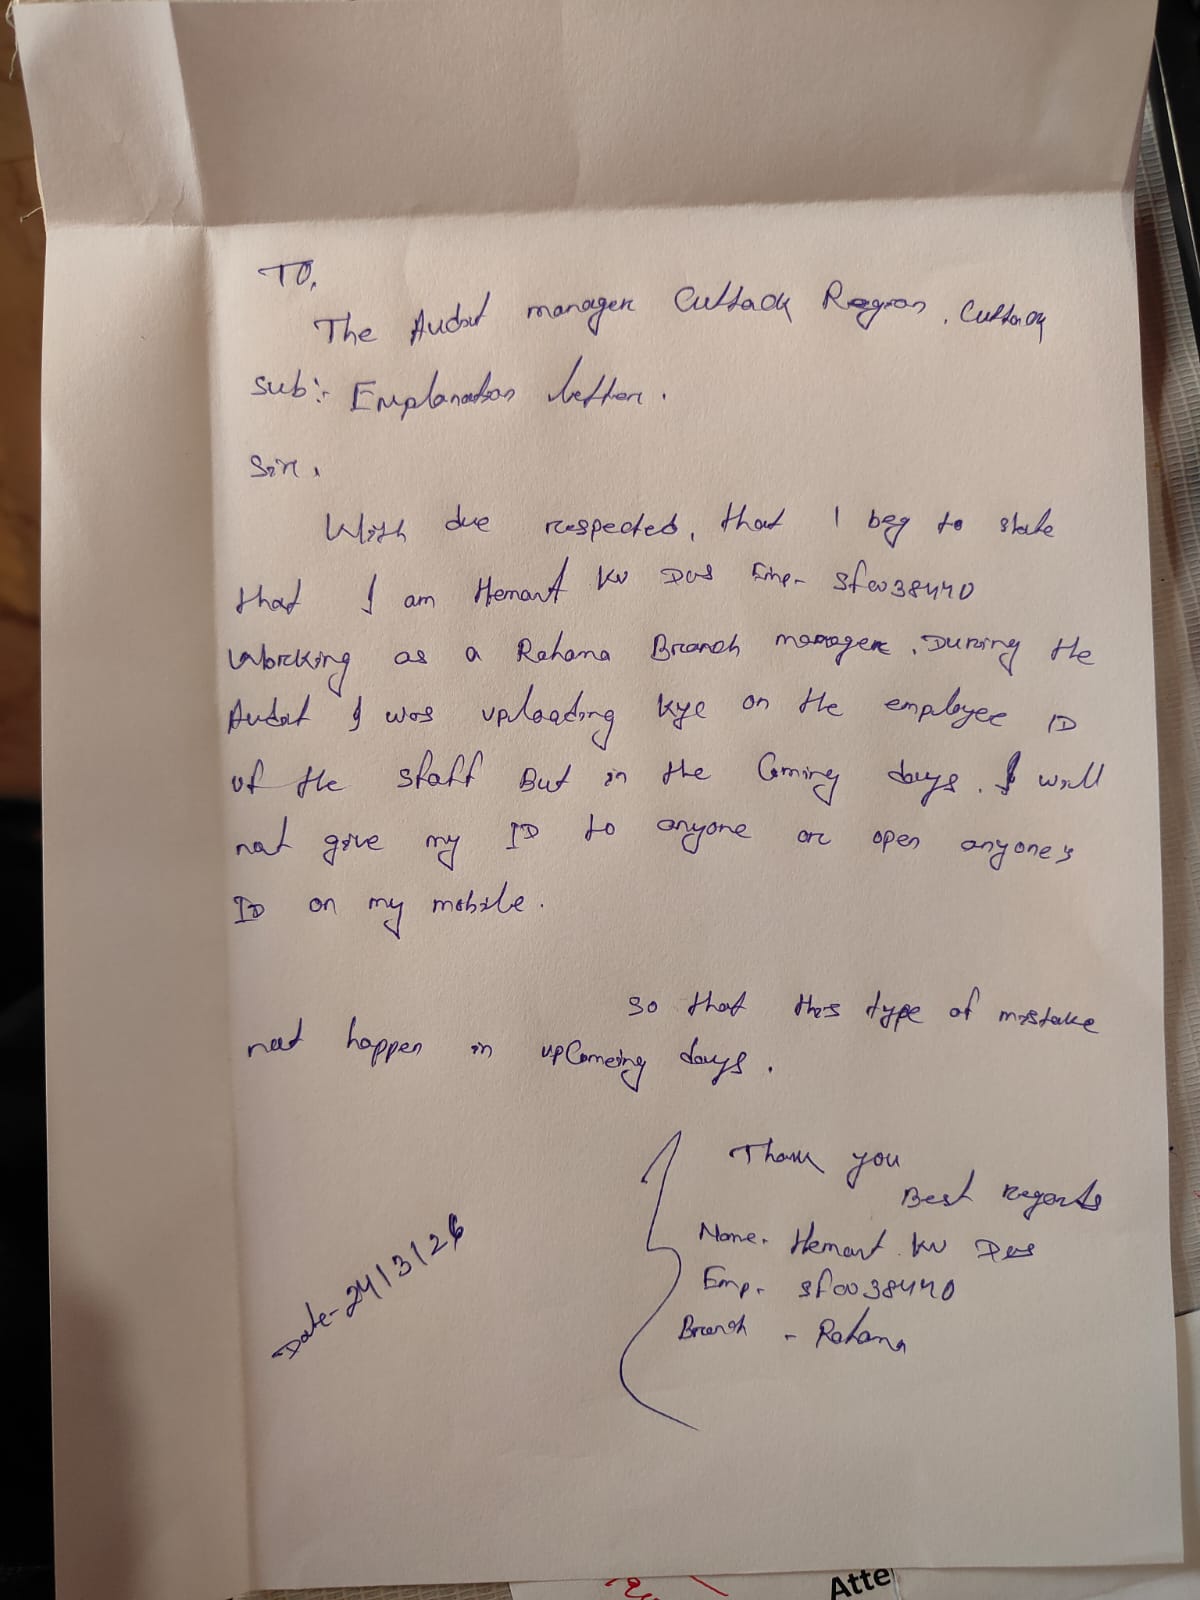 TO,
The Audit manager Cuttack Region, Cuttack
Sub:- Explanation letter.
Sir,
With due respected, that I beg to state
that I am Hemant Ku Das Emp- Sf0038440
Working as a Rahama Branch manager. During the
Audit I was uploading kyc on the employee ID
of the staff But in the Coming days. I will
not give my ID to anyone or open anyone's
ID on my mobile.
so that this type of mistake
not happen in upComeing days.
Thank you
Best regards
Name. Hemant Ku Das
Emp. Sf0038440
Branch - Rahama
Date-24/3/26
Atte